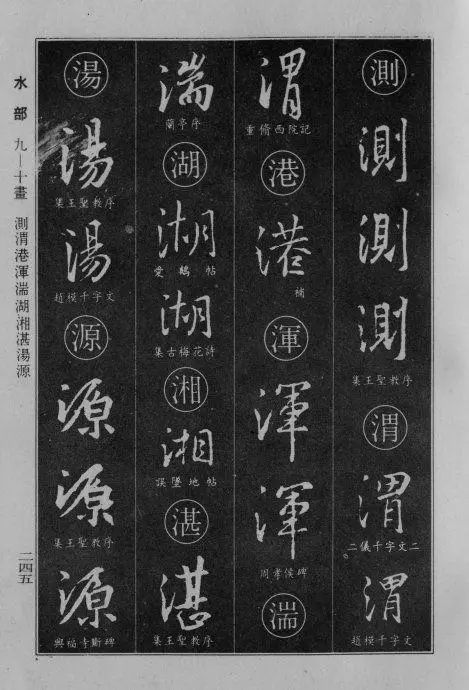 測
測
測
測
集王聖教序
渭
渭
二儀千字文二
渭
趙模千字文
渭
重脩西院記
港
港
補
渾
渾
渾
周孝侯碑
湍
湍
蘭亭序
湖
湖
愛鵝帖
湖
集古梅花詩
湘
湘
誤墜地帖
湛
湛
集王聖教序
湯
湯
集王聖教序
湯
趙模千字文
源
源
源
集王聖教序
源
興福寺斷碑
水部 九—十畫 測渭港渾湍湖湘湛湯源
二四五